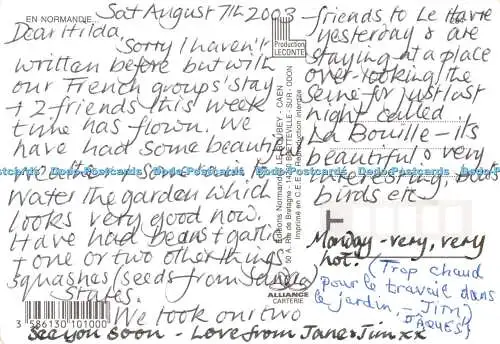 EN NORMANDIE
Sat August 7th 2003
Dear Hilda,
Sorry I haven't
written before but with
our French groups' stay
+ 2 friends this week
time has flown. We
have had some beautiful
Water the garden which
looks very good now.
Have had beans + garlic
+ one or two other things
squashes (seeds from
States.
We took on two
friends to Le Havre
yesterday & are
staying at a place
over-looking the
Seine for just last
night called
La Bouille - its
beautiful & very
interesting, boats
birds etc
Monday - very, very
hot!
(Trop chaud
pour le travail dans
le jardin, JIM)
JAQUES)
See you soon - Love from Jane & Jim xx
Production
LECONTE
Editions Normandes LE GOUBEY - CAEN
50 A, Rue de Bretagne - 14760 BRETTEVILLE - SUR - ODON
Imprimé en C.E.E. - Reproduction interdite
ALLIANCE
CARTERIE
3 586130 101000
Dodo-Postcards Dodo-Postcards Dodo-Postcards Dodo-Postcards Dodo-Postcards